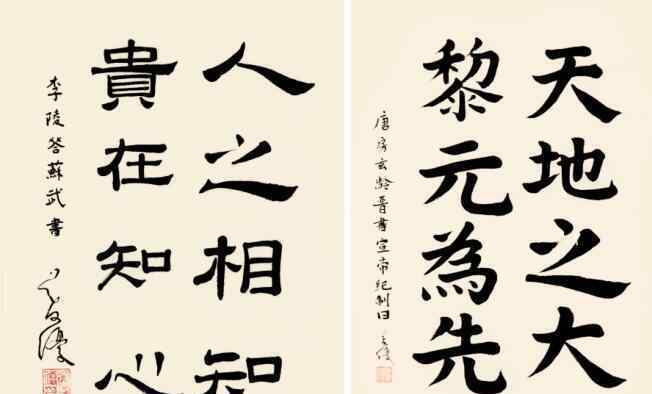 天地之大
黎元為先
唐房玄齡晉書宣帝紀制曰
人之相知
貴在知心
李陵答蘇武書